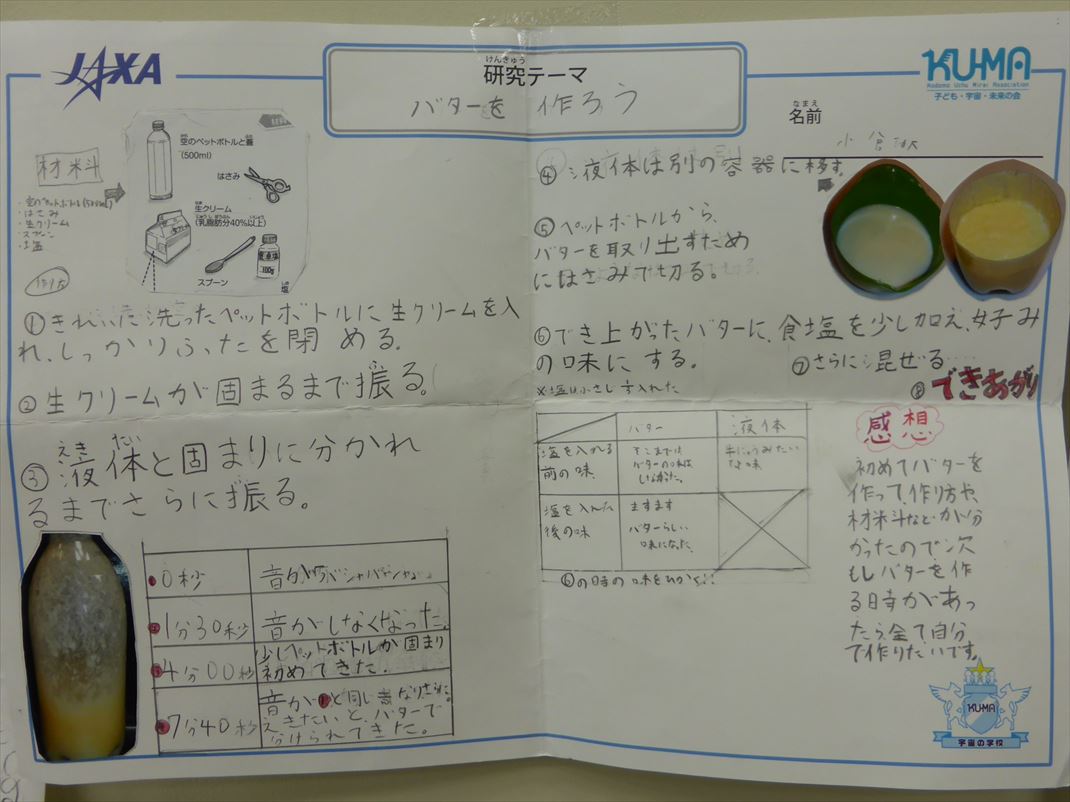 JAXA
けんきゅう
研究テーマ
バターを 作ろう
KU-MA
Kodomo Uchu Mirai Association
子ども・宇宙・未来の会
なまえ
名前
材料
・空のペットボトル(500ml)
・はさみ
・生クリーム
・スプーン
・塩
作り方
空のペットボトルと蓋
(500ml)
はさみ
生クリーム
(乳脂肪分40%以上)
スプーン
食卓塩
100g
塩
①きれいに洗ったペットボトルに生クリームを入
れ、しっかりふたを閉める。
②生クリームが固まるまで振る。
えきたい
③液体と固まりに分かれ
るまでさらに振る。
0秒
音がバシャバシャ
1分30秒
音がしなくなった。
4分00秒
少しペットボトルが固まり
初めてきた。
7分40秒
音が①と同じ音になりさらに、
えきたいと、バターで
分けられてきた。
④液体は別の容器に移す。
⑤ペットボトルから、
バターを取り出すため
にはさみで切る。
⑥でき上がったバターに、食塩を少し加え、好み
の味にする。
※塩は少し
入れた
⑦さらに混ぜる....
⑧できあがり
バター
液体
塩を入れる
前の味
そこまでは
バターの味は
しなかった。
牛にゅうみたい
な味
塩を入れた
後の味
ますます
バターらしい
味になった。
⑥の時の味
感想
初めてバターを
作って、作り方や、
材料などが分
かったので次
もしバターを作
る時があっ
たら全て自分
で作りたいです。
KU-MA
宇宙の学校